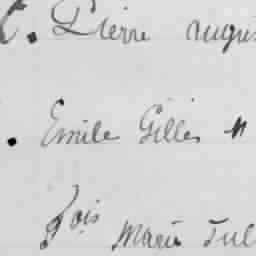 Pierre augus
Emile Gilles n
fois Marie Jul